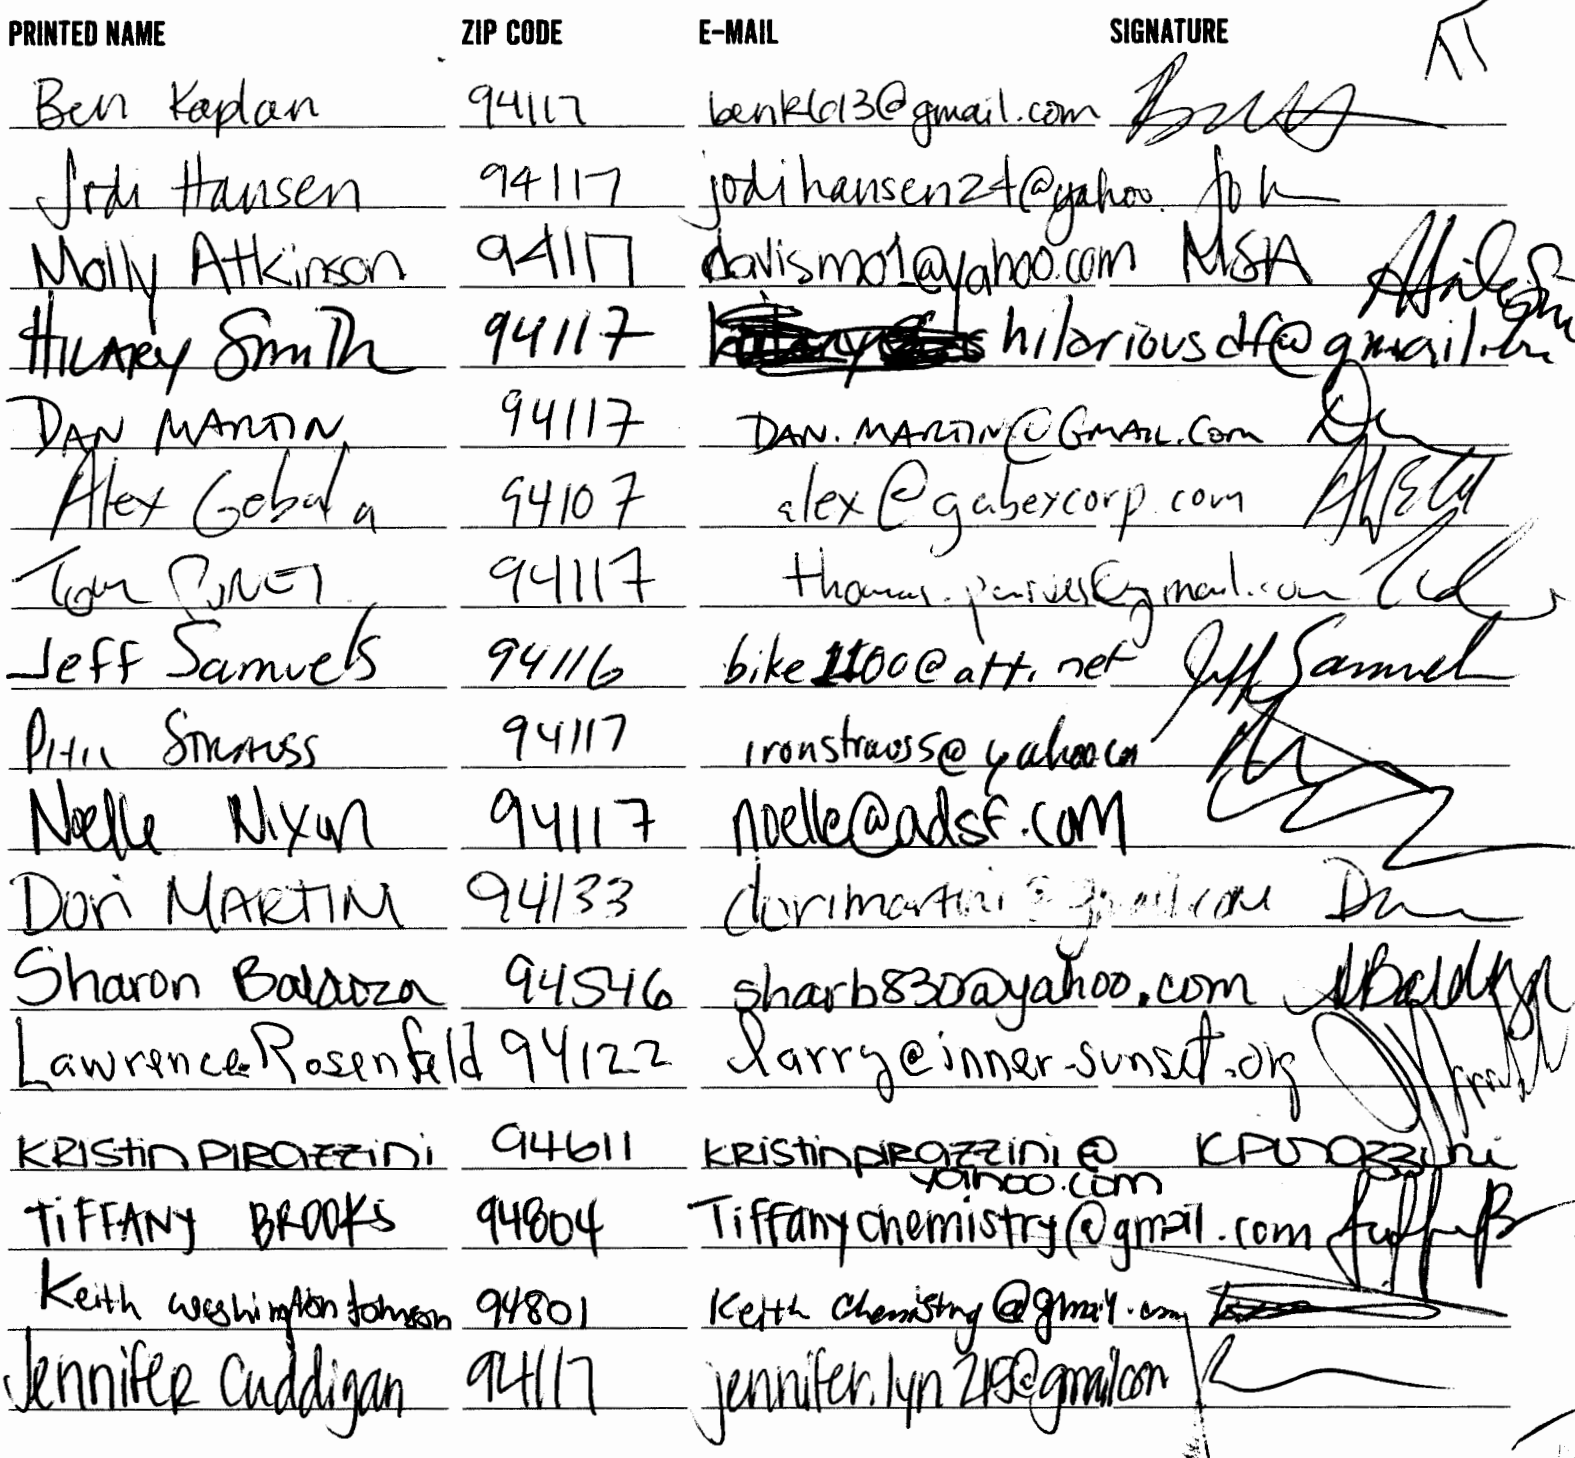 PRINTED NAME ZIP CODE E-MAIL SIGNATURE
Ben Kaplan 94117 benk613@gmail.com
Jodi Hansen 94117 jodihansen24@yahoo.
Molly Atkinson 94117 davismo1@yahoo.com MSA
HILARY Smith 94117 hilariousdf@gmail.
DAN MARTIN 94117 DAN.MARTIN@GMAIL.COM
Alex Gebala 94107 alex@gabexcorp.com
Tom 94117
Jeff Samuels 94116 bike1100@att.net Jeff Samuels
PHIL STRAUSS 94117 ironstrauss@yahoo
Noelle Nixon 94117 noelle@adsf.com
Dori MARTIN 94133 dorimartini@gmail.com
Sharon 94546 sharb830@yahoo.com
Lawrence Rosenfeld 94122 larry@inner-sunset.org
KRIStin PIRAZZINI 94611 KRIStinPIRAZZINI@
yahoo.com
TiFFANY BROOKS 94804 Tiffanychemistry@gmail.com
Keith Washington Johnson 94801 Keith Chemistry@gmail.com
Jennifer Cuddigan 94117 jennifer.lyn215@gmail.com